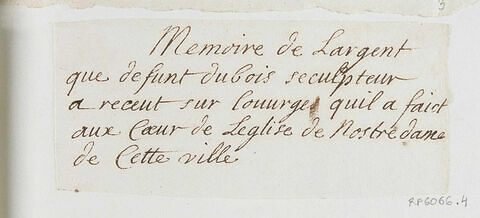 3
Memoire de Largent
que defunt dubois seculpteur
a receut sur louurges quil a faict
aux Cœur de Leglise de Nostre dame
de Cette ville
R.F6066.4